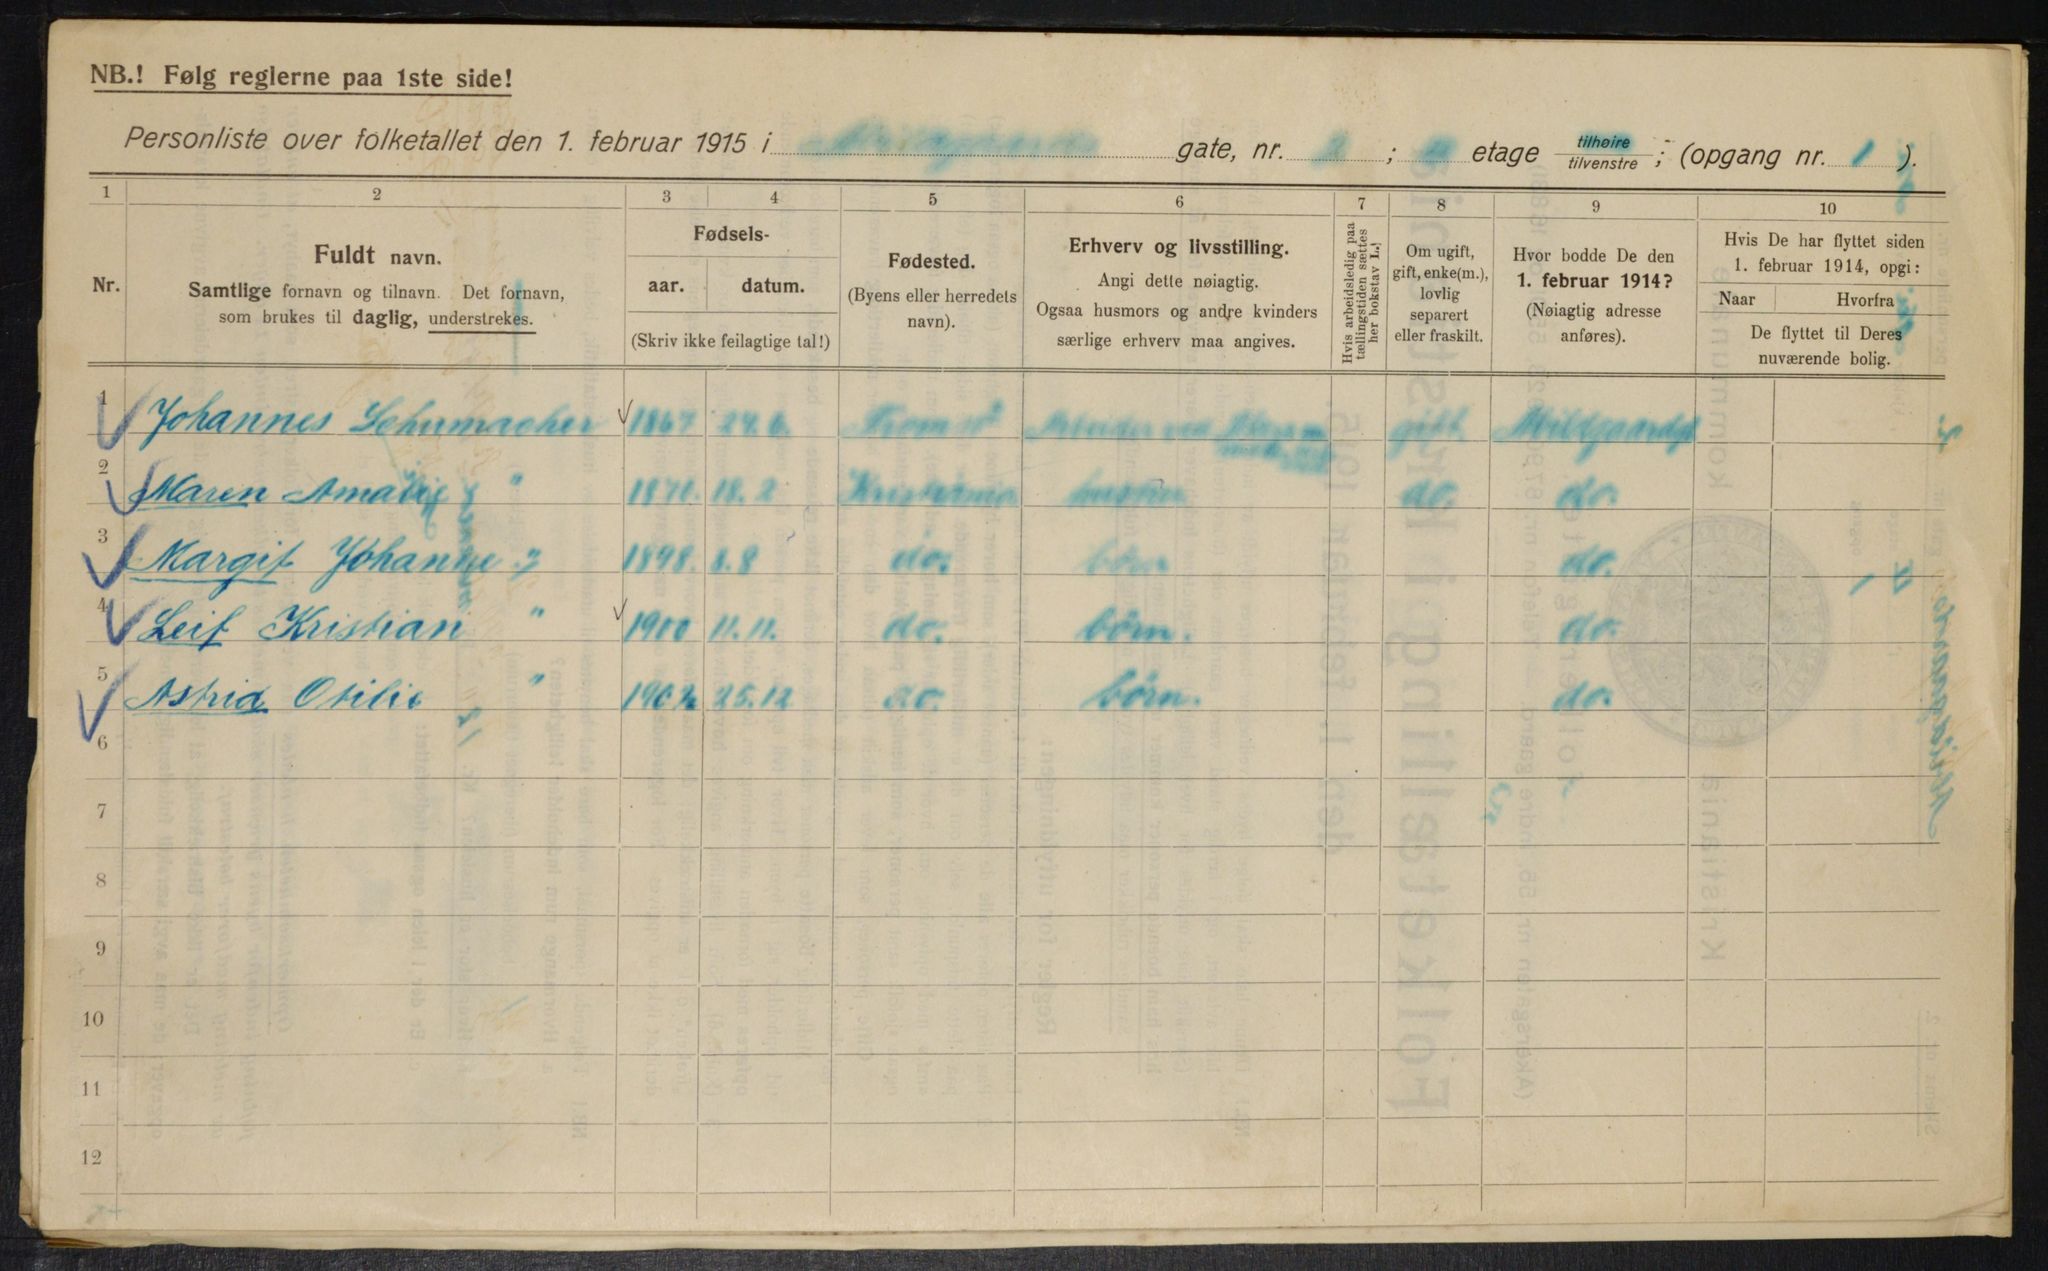 NB.! Følg reglerne paa 1ste side!
Personliste over folketallet den 1. februar 1915 i gate, nr. ; etage tilhøire tilvenstre ; (opgang nr. 1 ).
1 2 3 4 5 6 7 8 9 10
Nr.
Fuldt navn.
Samtlige fornavn og tilnavn. Det fornavn,
som brukes til daglig, understrekes.
Fødsels-
aar. datum.
(Skriv ikke feilagtige tal!)
Fødested.
(Byens eller herredets
navn).
Erhverv og livsstilling.
Angi dette nøiagtig.
Ogsaa husmors og andre kvinders
særlige erhverv maa angives.
Hvis arbeidsledig paa
tællingstiden sættes
her bokstav L.!
Om ugift,
gift, enke(m.),
lovlig
separert
eller fraskilt.
Hvor bodde De den
1. februar 1914?
(Nøiagtig adresse
anføres).
Hvis De har flyttet siden
1. februar 1914, opgi:
Naar Hvorfra
De flyttet til Deres
nuværende bolig.
1 Johannes Schumacher 1867 24.6 Tromsø gift
2 Maren Amalie " 18.2 Kristiania do. do.
3 Margit Johanne " 1898. do. børn do.
4 Leif Kristian " 1900 11.11. do. børn. do.
5 Astrid Otilie " 25.12 do. børn. do.
6
7
8
9
10
11
12